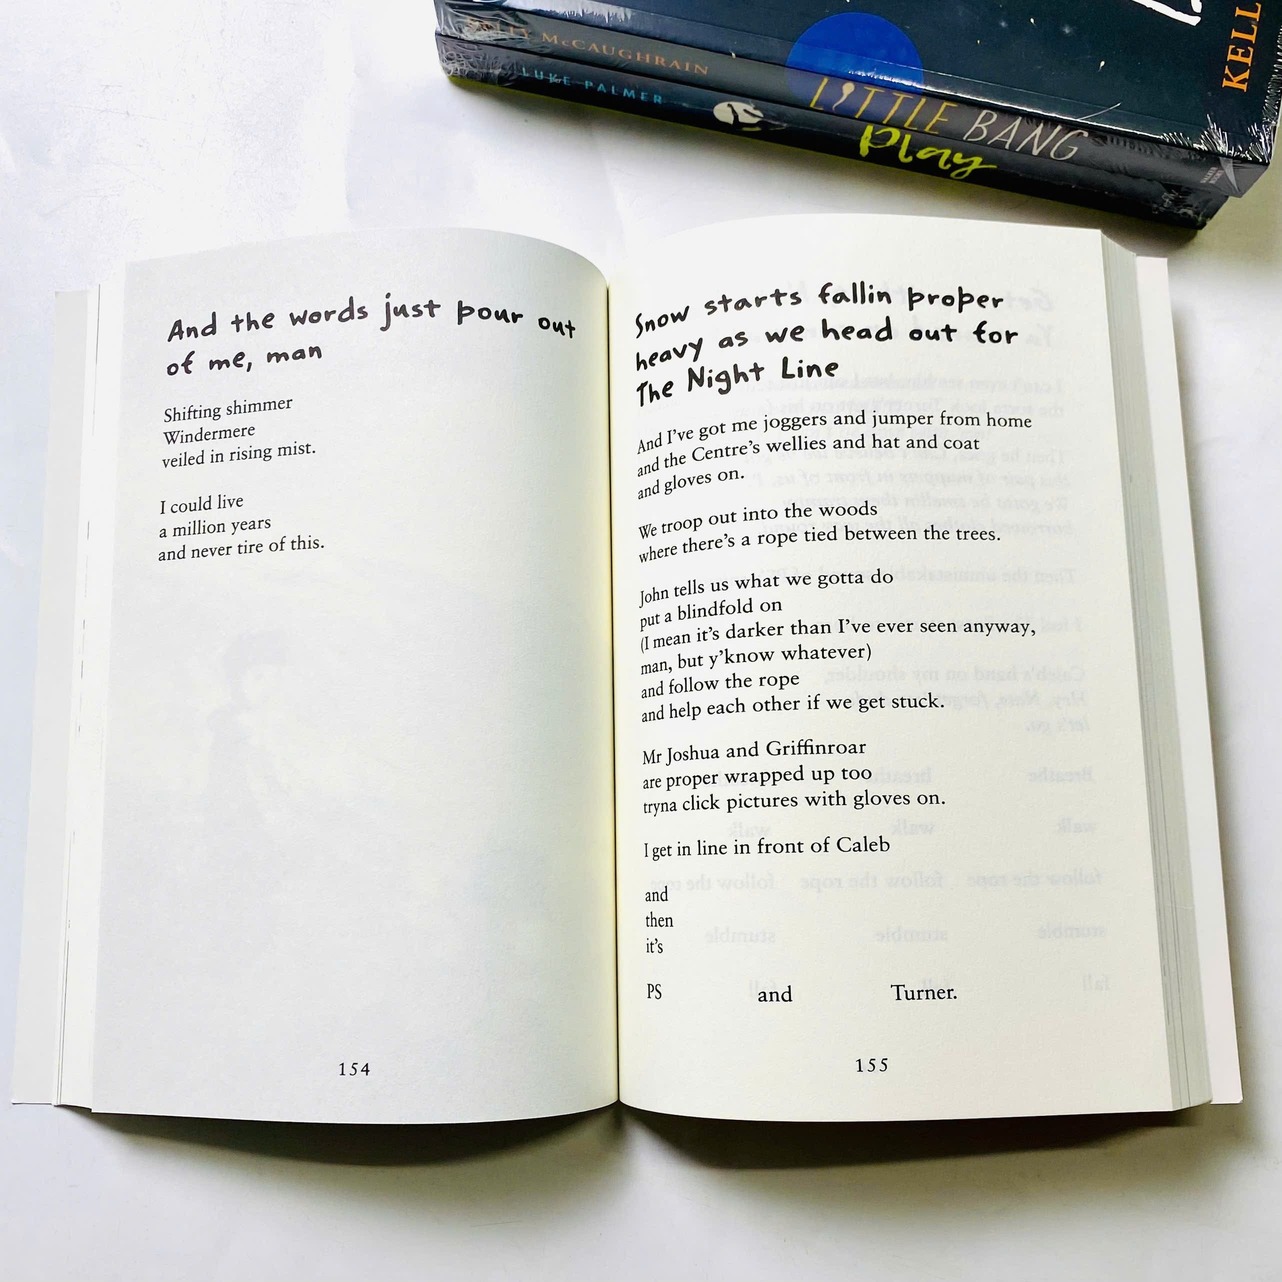 KELL
McCAUGHRAIN
LITTLE BANG
LUKE PALMER
Play
And the words just pour out
of me, man
Shifting shimmer
Windermere
veiled in rising mist.
I could live
a million years
and never tire of this.
154
Snow starts fallin proper
heavy as we head out for
The Night Line
And I've got me joggers and jumper from home
and the Centre's wellies and hat and coat
and gloves on.
We troop out into the woods
where there's a rope tied between the trees.
John tells us what we gotta do
put a blindfold on
(I mean it's darker than I've ever seen anyway,
man, but y'know whatever)
and follow the rope
and help each other if we get stuck.
Mr Joshua and Griffinroar
are proper wrapped up too
tryna click pictures with gloves on.
I get in line in front of Caleb
and
then
it's
PS and Turner.
155